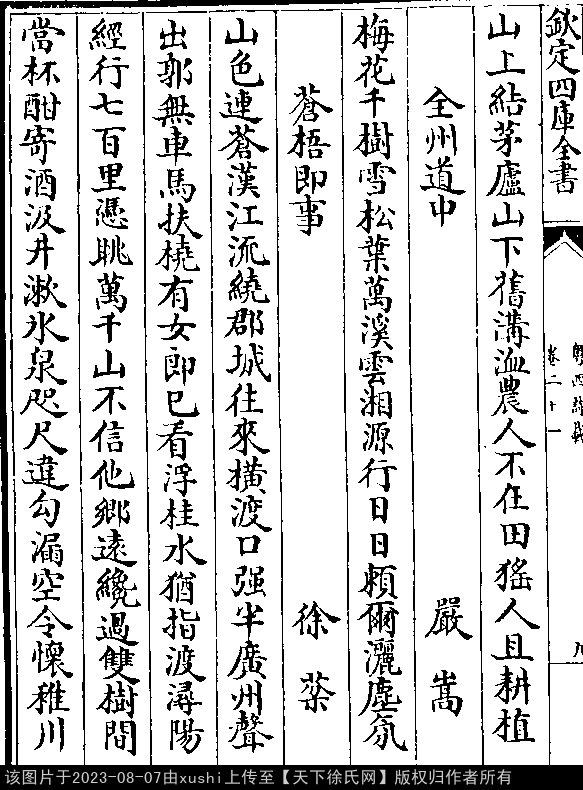 欽定四庫全書
粵西詩載
卷二十一
山上結茅廬山下舊溝洫農人不在田猺人且耕植
全州道中
嚴嵩
梅花千樹雪松葉萬溪雲湘源行日日賴爾灑塵氛
蒼梧即事
徐棻
山色連蒼漢江流繞郡城往來橫渡口强半廣州聲
出郭無車馬扶橈有女郎已看浮桂水猶指渡潯陽
經行七百里憑眺萬千山不信他鄉遠纔過雙樹間
當杯酣寄酒汲井漱氷泉咫尺違勾漏空令懷稚川
该图片于2023-08-07由xushi上传至【天下徐氏网】版权归作者所有